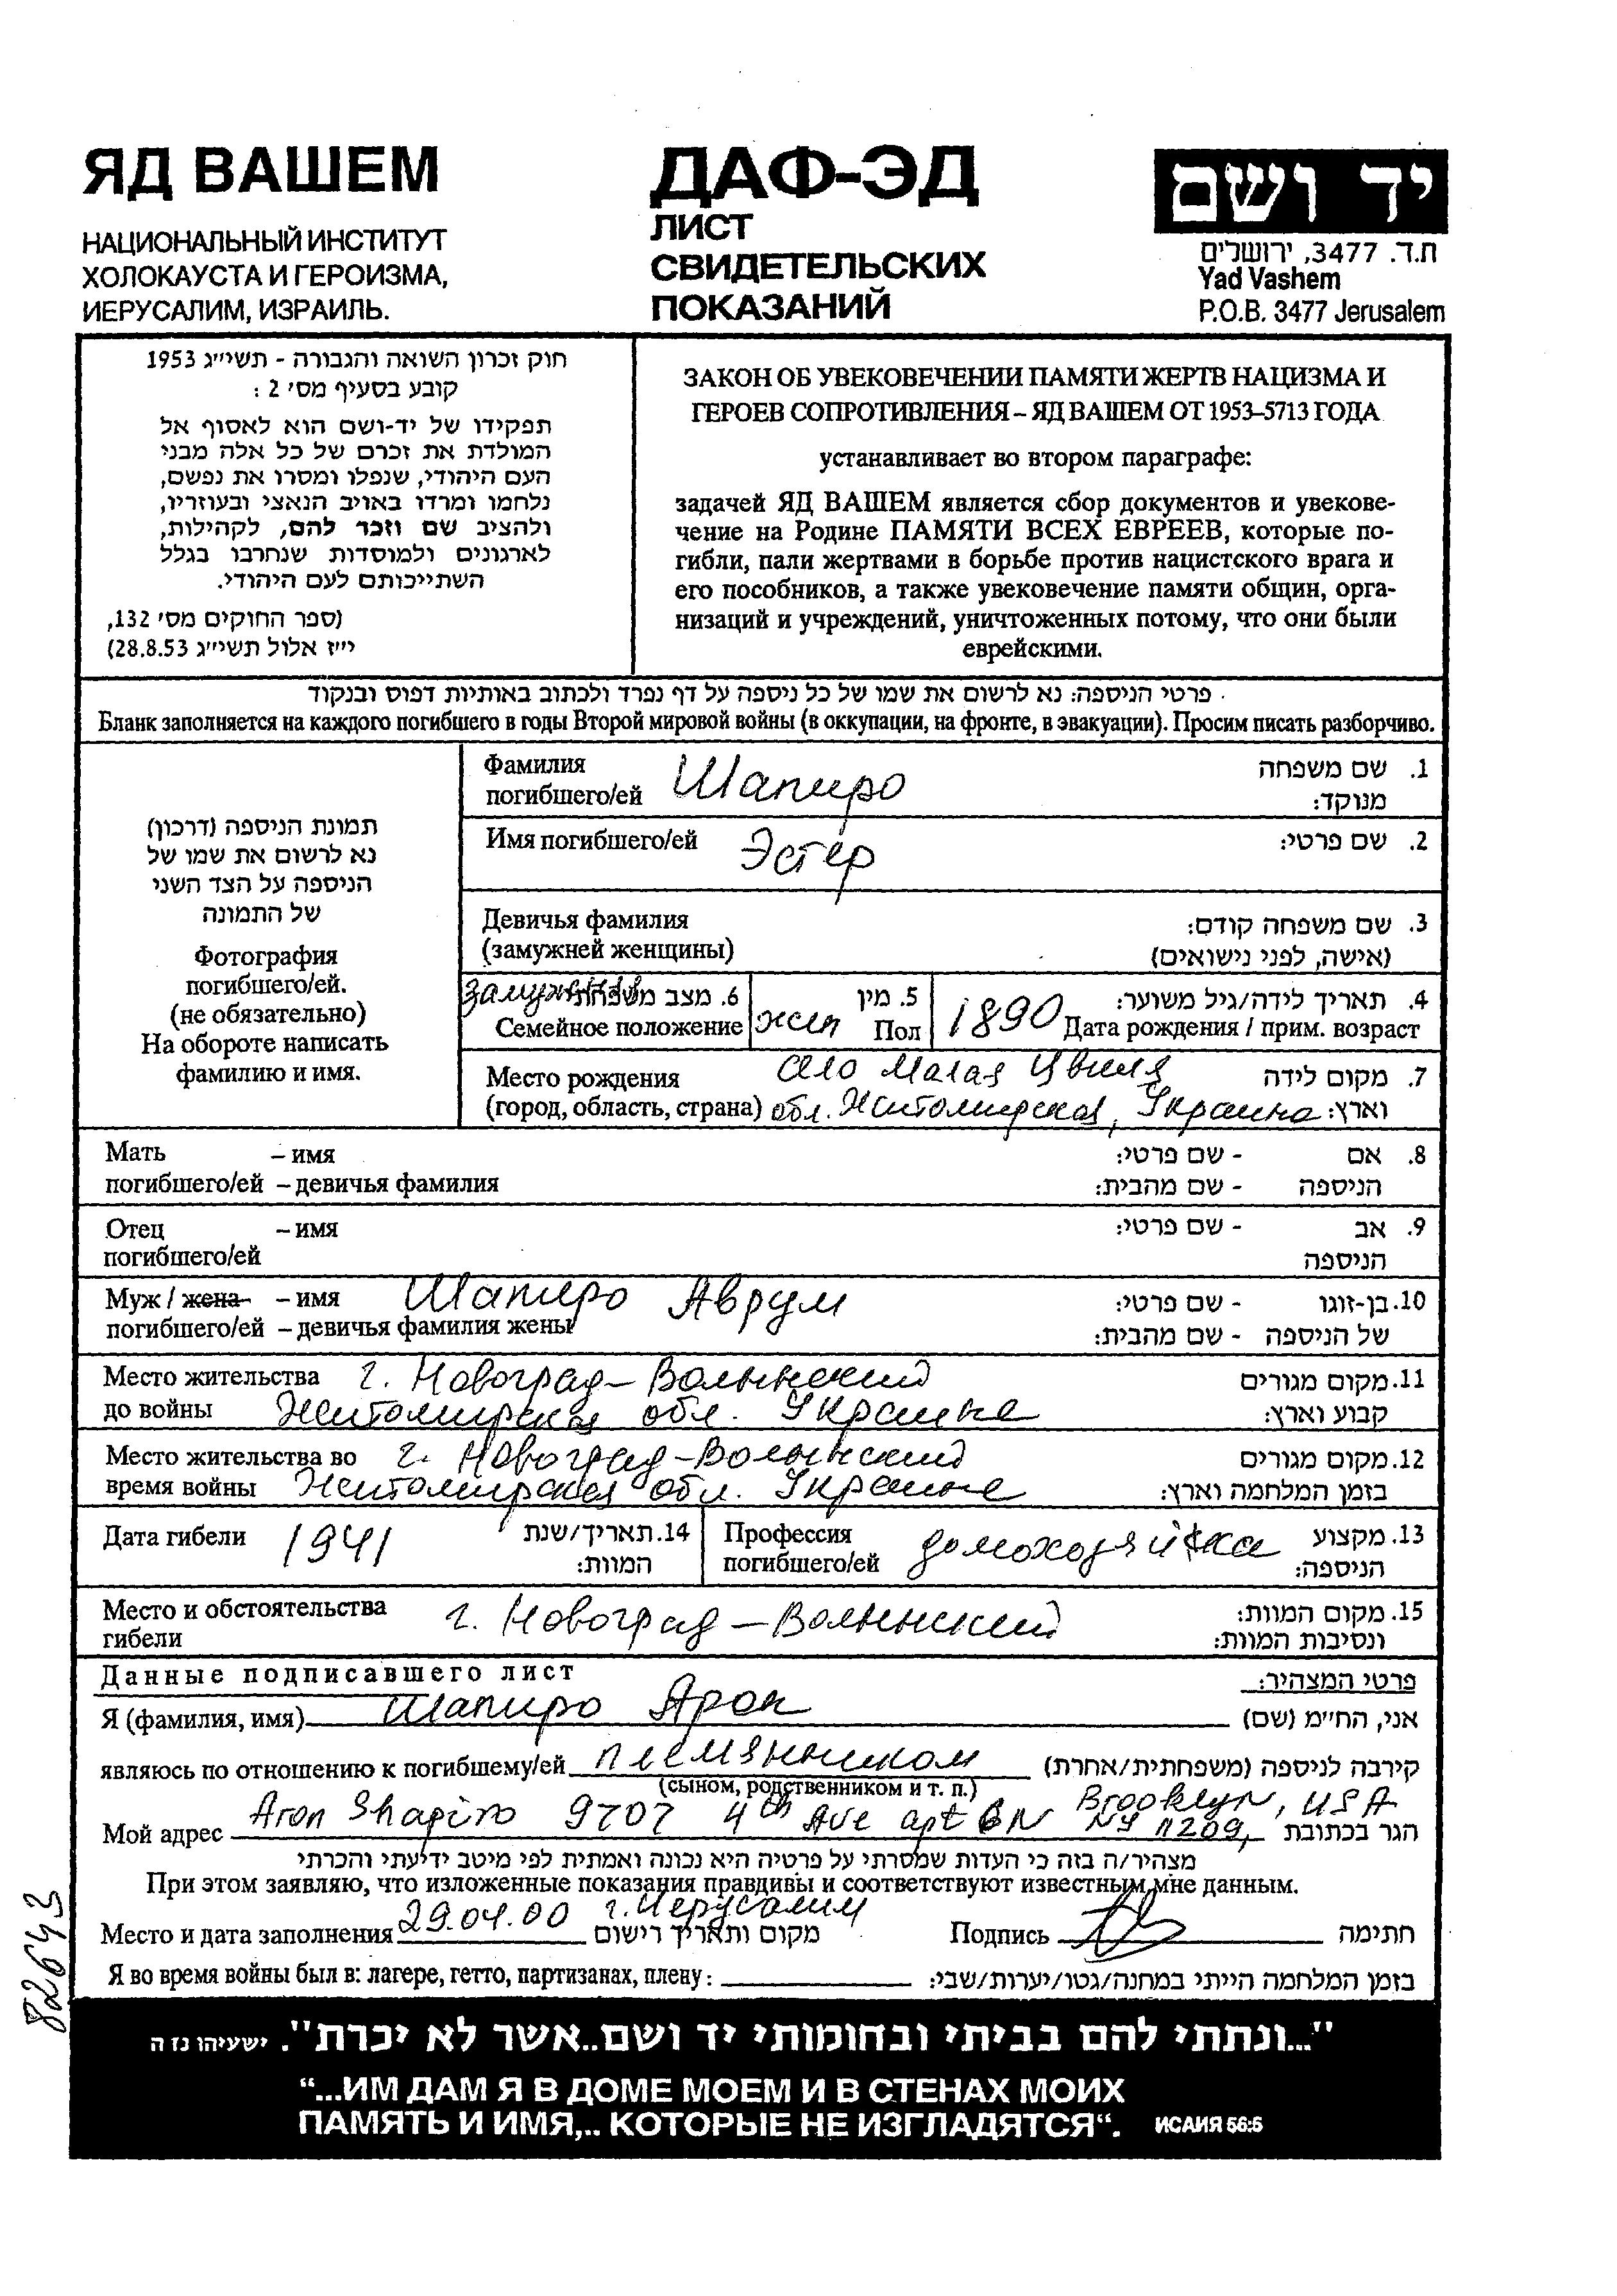 ЯД ВАШЕМ
НАЦИОНАЛЬНЫЙ ИНСТИТУТ
ХОЛОКАУСТА И ГЕРОИЗМА,
ИЕРУСАЛИМ, ИЗРАИЛЬ.
ДАФ-ЭД
ЛИСТ
СВИДЕТЕЛЬСКИХ
ПОКАЗАНИЙ
יד ושם
ת.ד. 3477, ירושלים
Yad Vashem
P.O.B. 3477 Jerusalem
חוק זכרון השואה והגבורה - תשי״ג 1953
קובע בסעיף מס׳ 2 :
תפקידו של יד-ושם הוא לאסוף אל
המולדת את זכרם של כל אלה מבני
העם היהודי, שנפלו ומסרו את נפשם,
נלחמו ומרדו באויב הנאצי ובעוזריו,
ולהציב שם וזכר להם, לקהילות,
לארגונים ולמוסדות שנחרבו בגלל
השתייכותם לעם היהודי.
(ספר החוקים מס׳ 132,
י״ז אלול תשי״ג 28.8.53)
ЗАКОН ОБ УВЕКОВЕЧЕНИИ ПАМЯТИ ЖЕРТВ НАЦИЗМА И
ГЕРОЕВ СОПРОТИВЛЕНИЯ – ЯД ВАШЕМ ОТ 1953–5713 ГОДА
устанавливает во втором параграфе:
задачей ЯД ВАШЕМ является сбор документов и увекове-
чение на Родине ПАМЯТИ ВСЕХ ЕВРЕЕВ, которые по-
гибли, пали жертвами в борьбе против нацистского врага и
его пособников, а также увековечение памяти общин, орга-
низаций и учреждений, уничтоженных потому, что они были
еврейскими.
פרטי הניספה: נא לרשום את שמו של כל ניספה על דף נפרד ולכתוב באותיות דפוס ובנקוד
Бланк заполняется на каждого погибшего в годы Второй мировой войны (в оккупации, на фронте, в эвакуации). Просим писать разборчиво.
תמונת הניספה (דרכון)
נא לרשום את שמו של
הניספה על הצד השני
של התמונה
Фотография
погибшего/ей.
(не обязательно)
На обороте написать
фамилию и имя.
Фамилия Шапиро 1. שם משפחה
погибшего/ей מנוקד:
Имя погибшего/ей Эстер 2. שם פרטי:
Девичья фамилия 3. שם משפחה קודם:
(замужней женщины) (אישה, לפני נישואים)
замужняя 6. מצב משפחתי 5. מין 4. תאריך לידה/גיל משוער:
Семейное положение жен Пол 1890 Дата рождения / прим. возраст
Место рождения село Малая Цвиля 7. מקום לידה
(город, область, страна) обл. Житомирская, Украина וארץ:
Мать – имя 8. אם - שם פרטי:
погибшего/ей – девичья фамилия הניספה - שם מהבית:
Отец – имя 9. אב - שם פרטי:
погибшего/ей הניספה
Муж / жена – имя Шапиро Аврум 10. בן-זוגו - שם פרטי:
погибшего/ей – девичья фамилия жены של הניספה - שם מהבית:
Место жительства г. Новоград-Волынский 11. מקום מגורים
до войны Житомирская обл. Украине קבוע וארץ:
Место жительства во г. Новоград-Волынский 12. מקום מגורים
время войны Житомирская обл. Украине בזמן המלחמה וארץ:
Дата гибели 1941 14. תאריך/שנת Профессия домохозяйка 13. מקצוע
המוות: погибшего/ей הניספה:
Место и обстоятельства г. Новоград-Волынский 15. מקום המוות:
гибели ונסיבות המוות:
Данные подписавшего лист פרטי המצהיר:
Я (фамилия, имя) Шапиро Арон אני, הח״מ (שם)
являюсь по отношению к погибшему/ей племянником קירבה לניספה (משפחתית/אחרת)
(сыном, родственником и т. п.)
Brooklyn, USA
Мой адрес Aron Shapiro 9707 4th Ave apt 6N NY 11209, הגר בכתובת
מצהיר/ה בזה כי העדות שמסרתי על פרטיה היא נכונה ואמתית לפי מיטב ידיעתי והכרתי
При этом заявляю, что изложенные показания правдивы и соответствуют известным мне данным.
Место и дата заполнения 29.04.00 г. Иерусалим מקום ותאריך רישום Подпись חתימה
Я во время войны был в: лагере, гетто, партизанах, плену: בזמן המלחמה הייתי במחנה/גטו/יערות/שבי:
82643
"...ונתתי להם בביתי ובחומותי יד ושם..אשר לא יכרת". ישעיהו נז ה
“...ИМ ДАМ Я В ДОМЕ МОЕМ И В СТЕНАХ МОИХ
ПАМЯТЬ И ИМЯ,.. КОТОРЫЕ НЕ ИЗГЛАДЯТСЯ“. ИСАИЯ 56:5